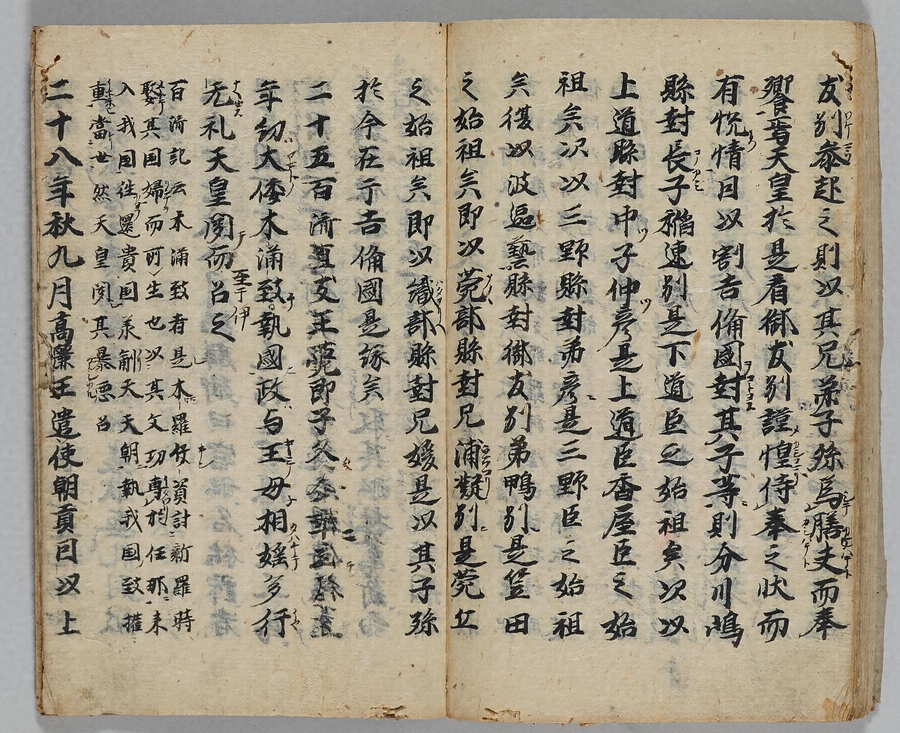 友別参赴之則以其兄弟子孫為膳夫而奉
饗焉天皇於是看御友別謹惶侍奉之状而
有悦情因以割吉備國封其子等則分川嶋
縣封長子稲速別是下道臣之始祖矣次以
上道縣封中子仲彦是上道臣香屋臣之始
祖矣次以三野縣封弟彦是三野臣之始祖
矣復以波區藝縣封御友別弟鴨別是笠田
之始祖矣即以菀部縣封兄浦凝別是菀臣
之始祖矣即以織部縣封兄媛是以其子孫
於今在于吉備國是縁矣
二十五百済直支王薨即子久尓辛立
年幼大倭木滿致執國政与王母相婬多行
无礼天皇聞而召之
百済記云木滿致者是木羅斤資討新羅時
娶其国婦而所生也以其父功専於任那来
入我国往還貴国羕制天天朝執我国致権
重當世然天皇聞其暴悪召
二十八年秋九月高麗王遣使朝貢因以上